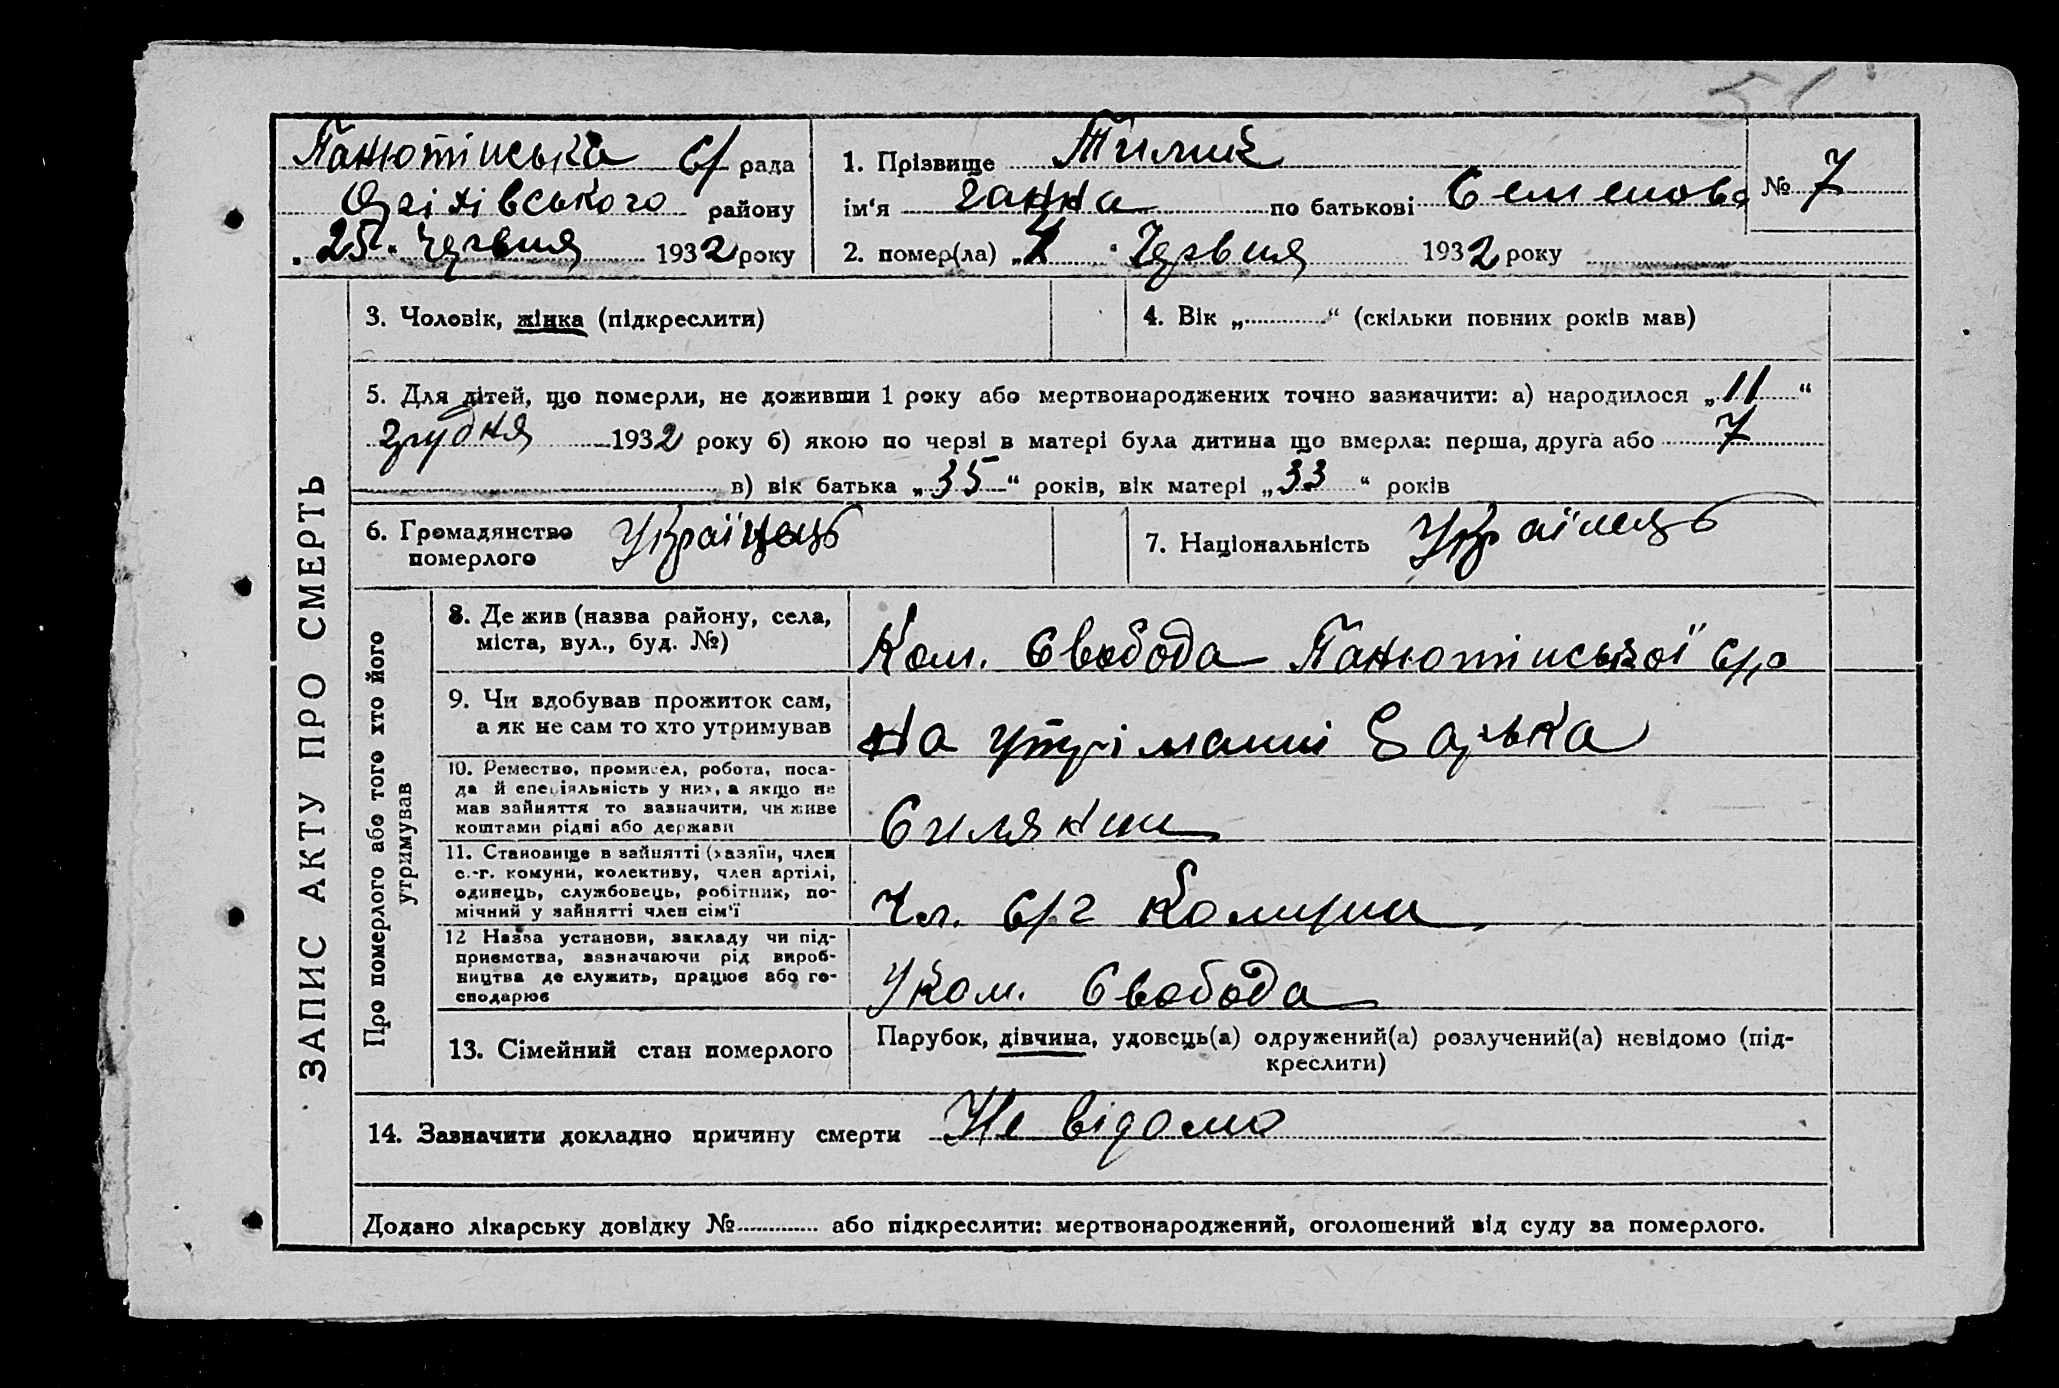 51
Панютінська с/рада
Оріхівського району
„25" Червня 1932 року
1. Прізвище Тилик
№ 7
ім'я Ганна по батькові Семенова
2. помер(ла) „4" Червня 1932 року
ЗАПИС АКТУ ПРО СМЕРТЬ
3. Чоловік, жінка (підкреслити)
4. Вік „............" (скільки повних років мав)
5. Для дітей, що померли, не доживши 1 року або мертвонароджених точно зазначити: а) народилося „11"
грудня 1932 року б) якою по черзі в матері була дитина що вмерла: перша, друга або 7
в) вік батька „35" років, вік матері „33" років
6. Громадянство
померлого
Українець
7. Національність Українець
Про померлого або того хто його
утримував
8. Де жив (назва району, села,
міста, вул., буд. №)
Ком. Свобода Панютінської с/р
9. Чи вдобував прожиток сам,
а як не сам то хто утримував
На утріманні батька
10. Ремество, промисел, робота, поса-
да й спеціяльність у них, а якщо не
мав зайняття то зазначити, чи живе
коштами рідні або держави
Силянин
11. Становище в зайнятті (хазяїн, член
с.-г. комуни, колективу, член артілі,
одинець, службовець, робітник, по-
мічний у зайнятті член сім'ї
Чл. с/г Комуни
12 Назва установи, закладу чи під-
приємства, зазначаючи рід вироб-
ництва де служить, працює або го-
сподарює
У Ком. Свобода
13. Сімейний стан померлого
Парубок, дівчина, удовець(а) одружений(а) розлучений(а) невідомо (під-
креслити)
14. Зазначити докладно причину смерти Не відомо
Додано лікарську довідку №............. або підкреслити: мертвонароджений, оголошений від суду за померлого.